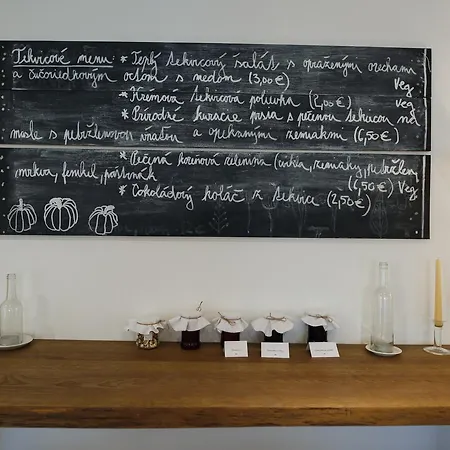 Tekvicové menu: * Teplý tekvicový šalát s opraženými orechami
a čučoriedkovým octom s medom (3,00€) Veg.
* Krémová tekvicová polievka (2,00€) Veg
* Prírodné kuracie prsa s pečenou tekvicou na
masle s petržlenovou vňaťou a opekanými zemiakmi (6,50€)
* Pečená koreňová zelenina (cvikla, zemiaky, petržlen,
mrkva, fenikel, paštrnák (6,50€) Veg
* Čokoládový koláč z tekvice (2,50€)